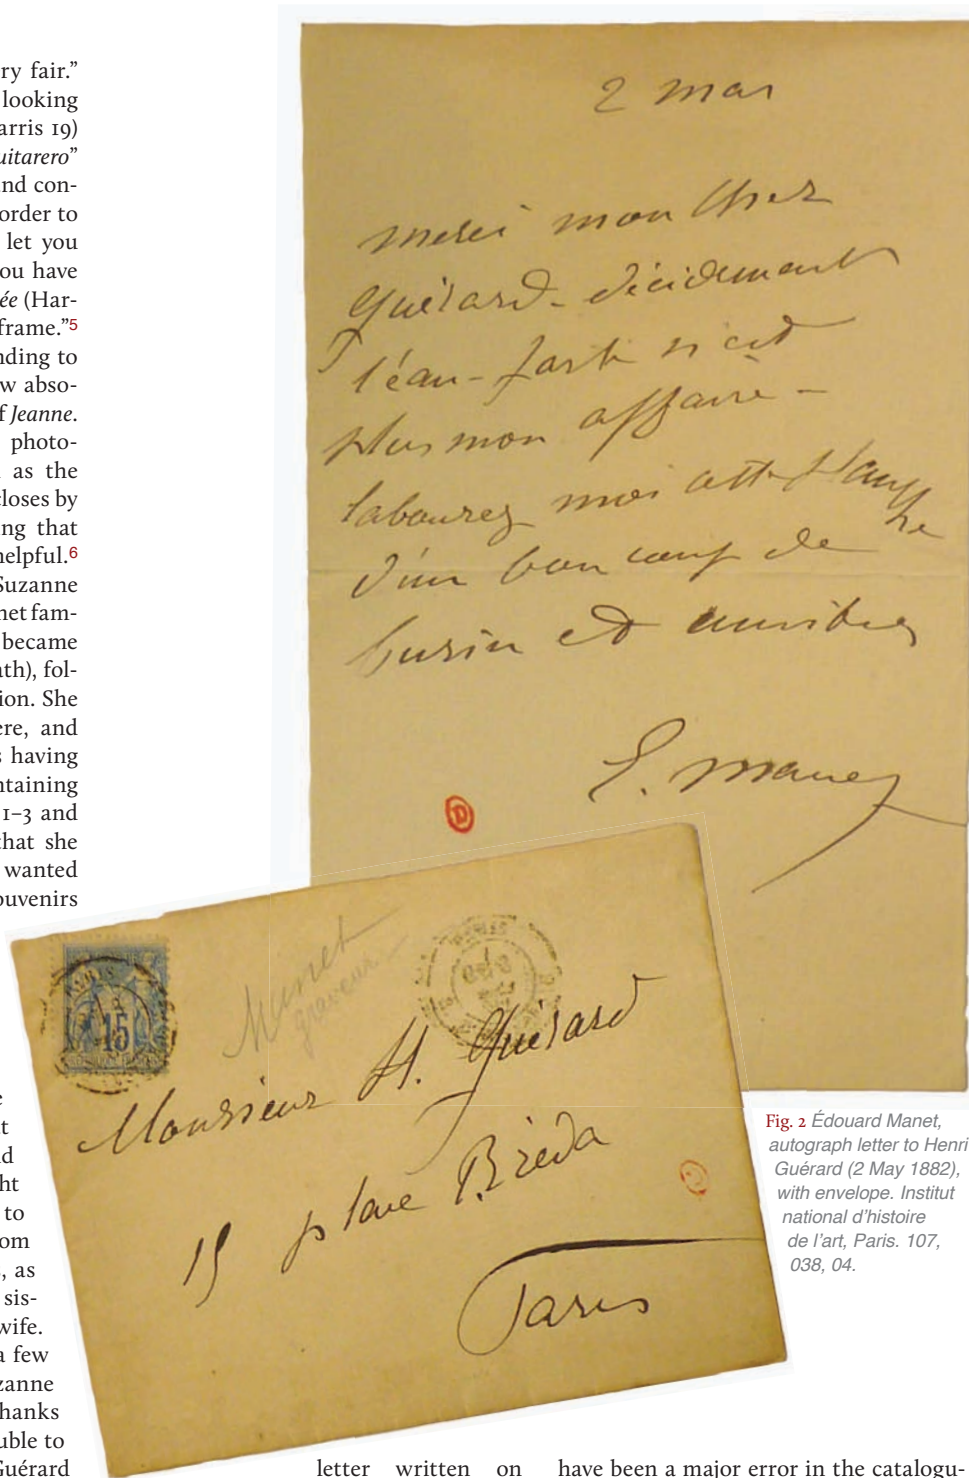 ry fair.”
looking
arris 19)
uitarero”
nd con-
order to
let you
ou have
ée (Har-
frame.”5
nding to
w abso-
f Jeanne.
photo-
as the
closes by
ng that
helpful.6
Suzanne
net fam-
became
ath), fol-
ion. She
ere, and
s having
ntaining
1–3 and
that she
wanted
ouvenirs
e
t
d
ght
to
om
, as
sis-
wife.
a few
zanne
hanks
uble to
Guérard
2 mai
merci mon cher
Guérard - décidement
l'eau-forte n'est
plus mon affaire -
labourez moi cette planche
d'un bon coup de
burin et amitiés
E. Manet
D
15
Manet
graveur
Monsieur H. Guérard
15 place Bréda
Paris
Fig. 2 Édouard Manet,
autograph letter to Henri
Guérard (2 May 1882),
with envelope. Institut
national d’histoire
de l’art, Paris. 107,
038, 04.
letter written on
have been a major error in the catalogu-